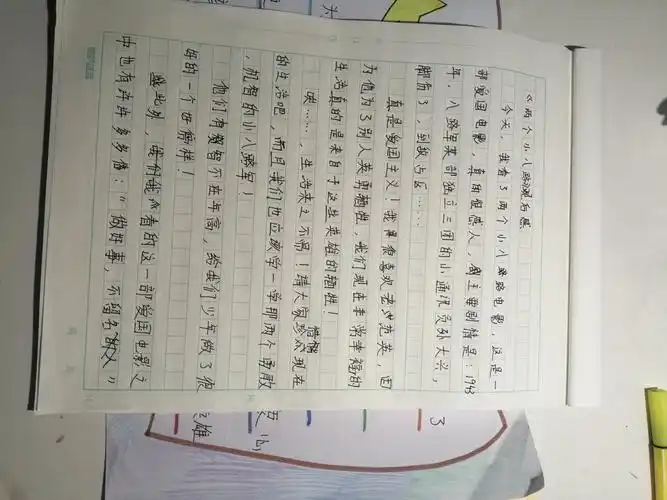 《两个小八路》观后感
今天,我看了两个小八路电影,这是一
部爱国电影,真的很感人,主要剧情是:1943
年,八路军某部独立三团的小通讯员孙大兴,
脚负了,到敌占区……
真是爱国主义!我最喜欢武光英,因
为他为了别人英勇牺牲,我们现在非常幸福的
生活真的是来自于这些英雄的牺牲!
唉……,生活来之不易!请大家珍惜现在
的生活吧,而且我们也应该学一学那两个勇敢
,机智的小八路军!
他们有智不在年高,给我们少年做了很
好的一个好榜样!
除此外,我们看的这一部爱国电影之
中也有许许多多像:“做好事,不留名的人”